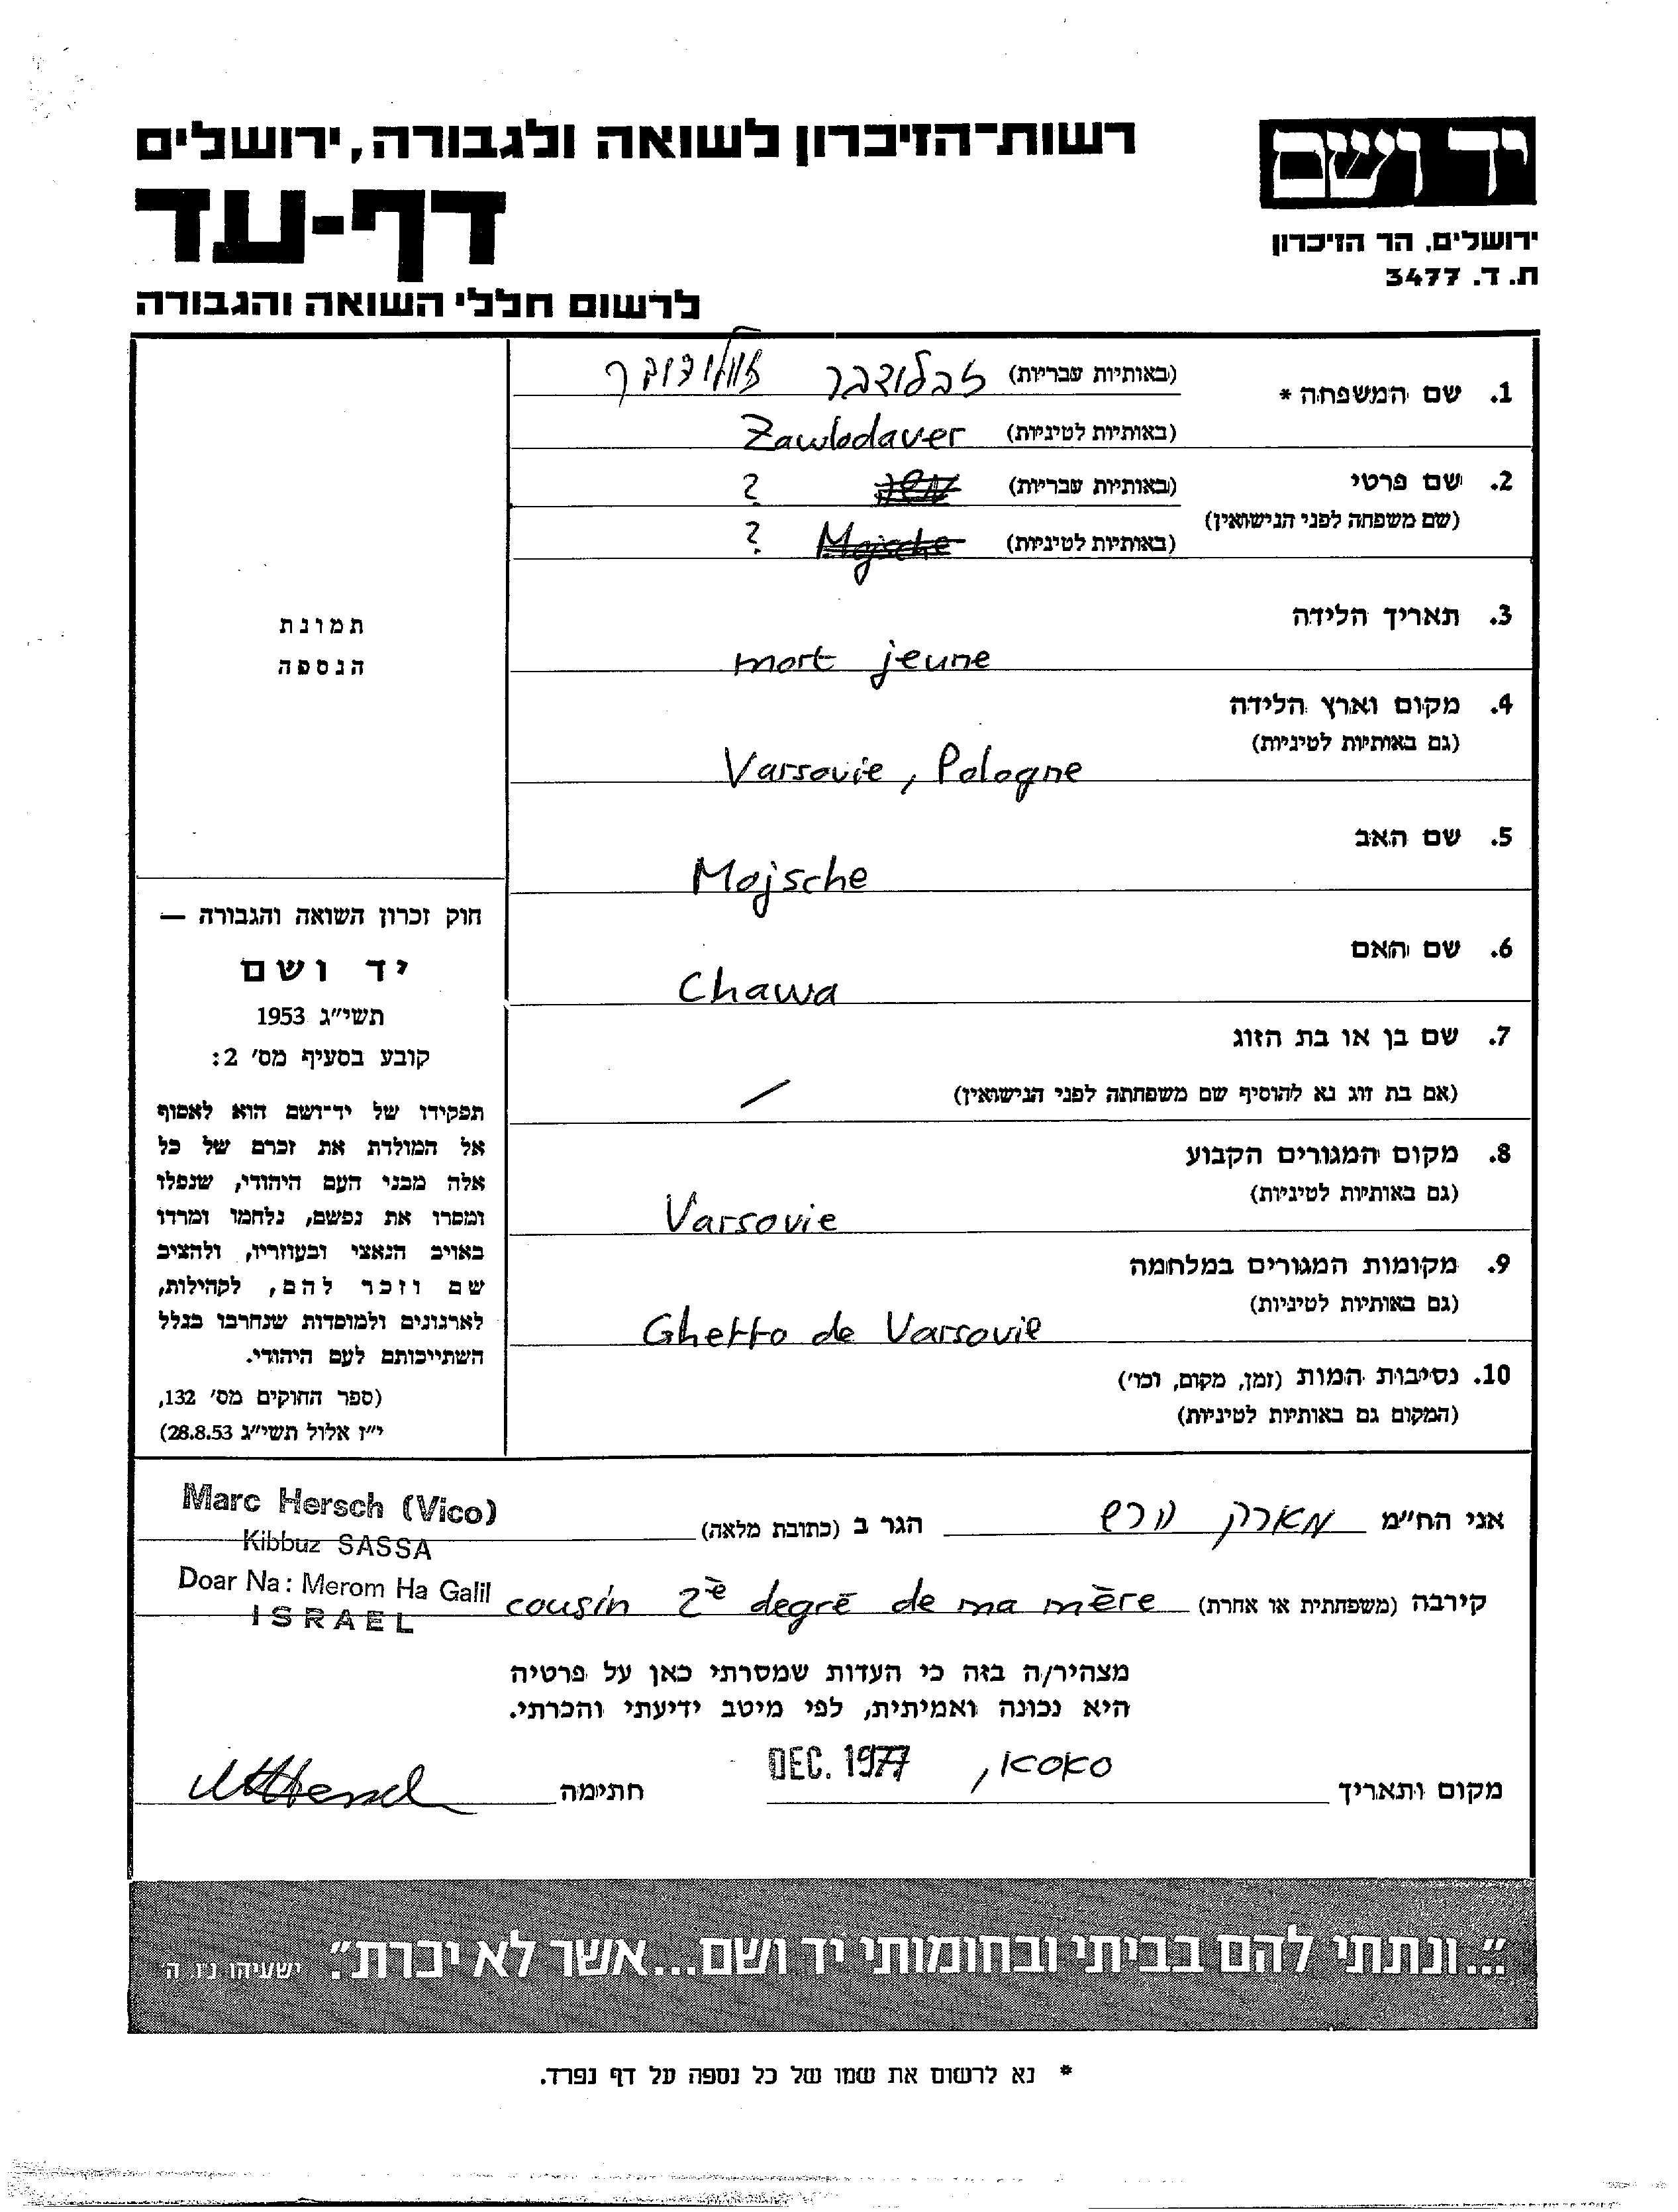 יד ושם
ירושלים, הר הזיכרון
ת. ד. 3477
רשות-הזיכרון לשואה ולגבורה, ירושלים
דף-עד
לרשום חללי השואה והגבורה
1. שם המשפחה * (באותיות עבריות) זבלודבר
(באותיות לטיניות) Zawlodaver
2. שם פרטי (באותיות עבריות) משה ?
(שם משפחה לפני הנישואין) (באותיות לטיניות) Mojsche ?
3. תאריך הלידה
mort jeune
4. מקום וארץ הלידה
(גם באותיות לטיניות)
Varsovie, Pologne
5. שם האב
Mojsche
6. שם האם
Chawa
7. שם בן או בת הזוג
(אם בת זוג נא להוסיף שם משפחתה לפני הנישואין) /
8. מקום המגורים הקבוע
(גם באותיות לטיניות)
Varsovie
9. מקומות המגורים במלחמה
(גם באותיות לטיניות)
Ghetto de Varsovie
10. נסיבות המות (זמן, מקום, וכו')
(המקום גם באותיות לטיניות)
תמונת
הנספה
חוק זכרון השואה והגבורה —
יד ושם
תשי"ג 1953
קובע בסעיף מס' 2:
תפקידו של יד-ושם הוא לאסוף
אל המולדת את זכרם של כל
אלה מבני העם היהודי, שנפלו
ומסרו את נפשם, נלחמו ומרדו
באויב הנאצי ובעוזריו, ולהציב
שם וזכר להם, לקהילות,
לארגונים ולמוסדות שנחרבו בגלל
השתייכותם לעם היהודי.
(ספר החוקים מס' 132,
י"ז אלול תשי"ג 28.8.53)
אני הח"מ מארק הרש הגר ב (כתובת מלאה)
Marc Hersch (Vico)
Kibbuz SASSA
Doar Na: Merom Ha Galil
ISRAEL
קירבה (משפחתית או אחרת) cousin 2è degré de ma mère
מצהיר/ה בזה כי העדות שמסרתי כאן על פרטיה
היא נכונה ואמיתית, לפי מיטב ידיעתי והכרתי.
מקום ותאריך סאסא, DEC. 1977 חתימה
"...ונתתי להם בביתי ובחומותי יד ושם...אשר לא יכרת". ישעיהו נ"ו, ה'
* נא לרשום את שמו של כל נספה על דף נפרד.